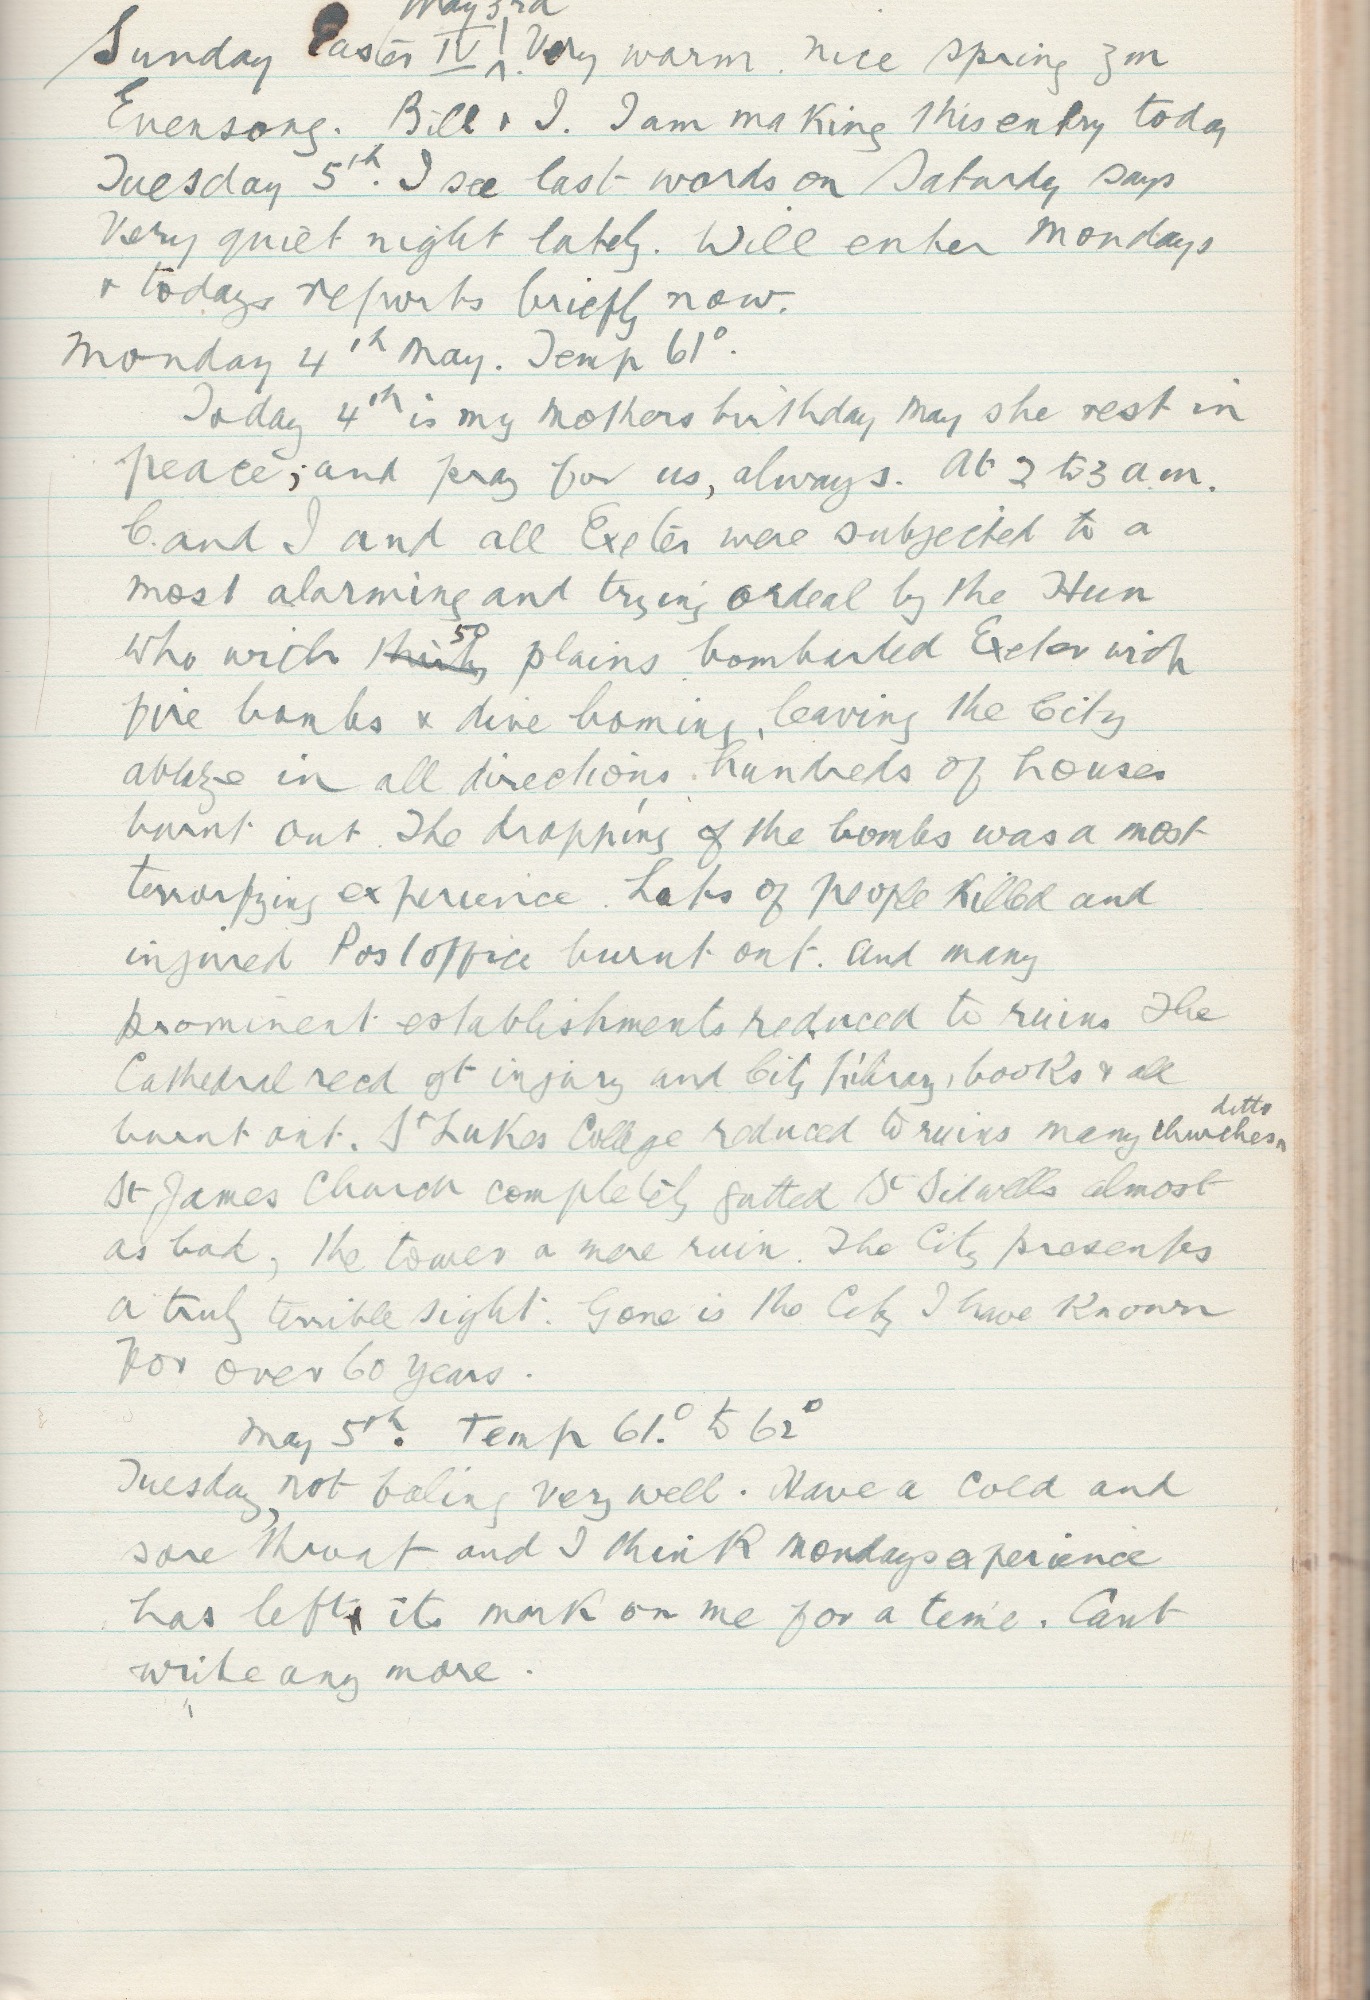 May 3rd
Sunday Easter IV. Very warm. nice spring
Evensong. Bill & I. I am making this entry today
Tuesday 5th. I see last words on Saturdy says
Very quiet night lately. Will enter Mondays
& todays reports briefly now.
Monday 4th May. Temp 61°.
Today 4th is my Mothers birthday may she rest in
peace; and pray for us, always. At 2 to 3 a.m.
C. and I and all Exeter were subjected to a
most alarming and trying ordeal by the Hun
50
who with thirty plains bombarded Exeter with
fire bombs & dive boming, leaving the City
ablaze in all directions. hundreds of houses
burnt out. The dropping of the bombs was a most
terrorfying experience. Lots of people killed and
injured Post office burnt out. and many
prominent establishments reduced to ruins The
Cathedral recd gt injury and City library, books & all
ditto
burnt out. St Lukes College reduced to ruins many churches
St James Church completely gutted St Sidwells almost
as bad, the tower a mere ruin. The City presents
a truly terrible sight. Gone is the City I have known
For over 60 years.
May 5th. Temp 61.° to 62°
Tuesday, not feeling very well. Have a cold and
sore throat and I think Mondays experience
has left its mark on me for a time. Cant
write any more.